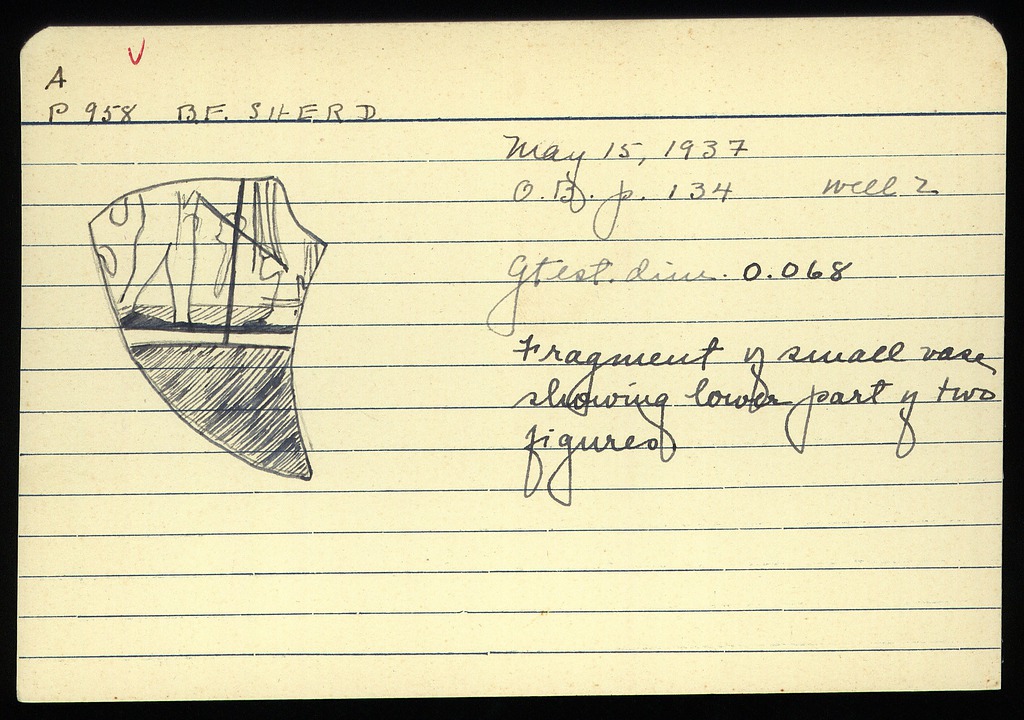 V
A
P 958 B.F. SHERD
May 15, 1937
O.B. p. 134 well 2
Gtest. dim. 0.068
Fragment of small vase
showing lower part of two
figures